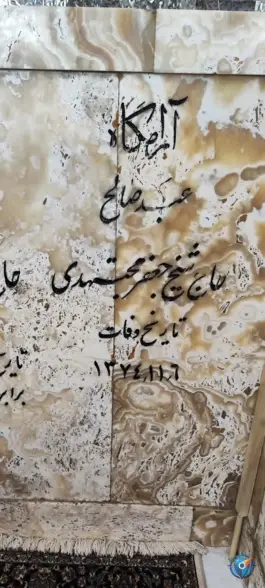 آرامگاه
عبد صالح
حاج شیخ جعفر مجتهدی
تاریخ وفات
۱۳۷۴،۱۱،۶